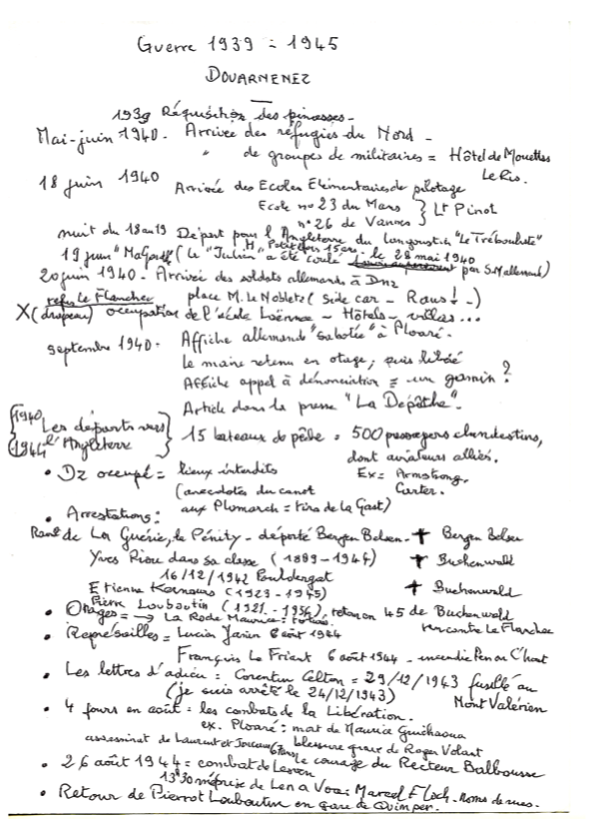 Guerre 1939 = 1945
DOUARNENEZ
1939 Réquisition des pinasses -
Mai-juin 1940. Arrivée des réfugiés du Nord -
" de groupes de militaires = Hôtel de Mouettes
Le Ris.
18 juin 1940 Arrivée des Ecoles Elémentaires de pilotage
Ecole n° 23 du Mans } Lt Pinot
n° 26 de Vannes
nuit du 18 au 19 Départ pour l'Angleterre du langoustier "Le Trébouliste"
M. Petit 15 ans.
19 juin "Ma Gondole" (Le "Julien" a été coulé le 28 mai 1940 par S.M allemand)
20 juin 1940 - Arrivée des soldats allemands à Dnz
refus Le Flanchec place M. Le Nobletz (side car - Raus ! -)
X (drapeau) occupation de l'école Laënnec - Hôtels - villas...
septembre 1940. Affiche allemande "sabotée" à Ploaré.
Le maire retenu en otage, puis libéré
Affiche appel à dénonciation = un gamin ?
Article dans la presse "La Dépêche".
{1940 1944 Les départs vers l'Angleterre} 15 bateaux de pêche = 500 passagers clandestins,
dont aviateurs alliés.
• Dz occupé = lieux interdits Ex = Armstrong,
(anecdotes du canot Carter.
aux Plomarch = tirs de la Gast)
• Arrestations :
de La Guérie, le Pénity - déporté Bergen Belsen - † Bergen Belsen
Yves Riou dans sa classe (1889-1944) † Buchenwald
16/12/1942 Pouldergat
Etienne (1923-1945) † Buchenwald
Pierre Louboutin (1921-1956), retour en 45 de Buchenwald
rencontre Le Flanchec
• Otages = → La Rade Maurice
• Représailles = Lucien Jarien 6 août 1944
François Le Friant 6 août 1944 - incendie Pen ar C'hoat
• Les lettres d'adieu = Corentin Celton = 29/12/1943 fusillé au
Mont Valérien
(je suis arrêté le 24/12/1943)
• 4 jours en août = les combats de la Libération.
ex. Ploaré : mort de Maurice Guilhaoua
blessure grave de Roger Volant
assassinat de Laurent et le courage du Recteur Balbousse
• 26 août 1944 = combat de Lesven
13h30 méprise de Len a Vor : Marcel F Loch - noms de rues.
• Retour de Pierrot Louboutin en gare de Quimper.